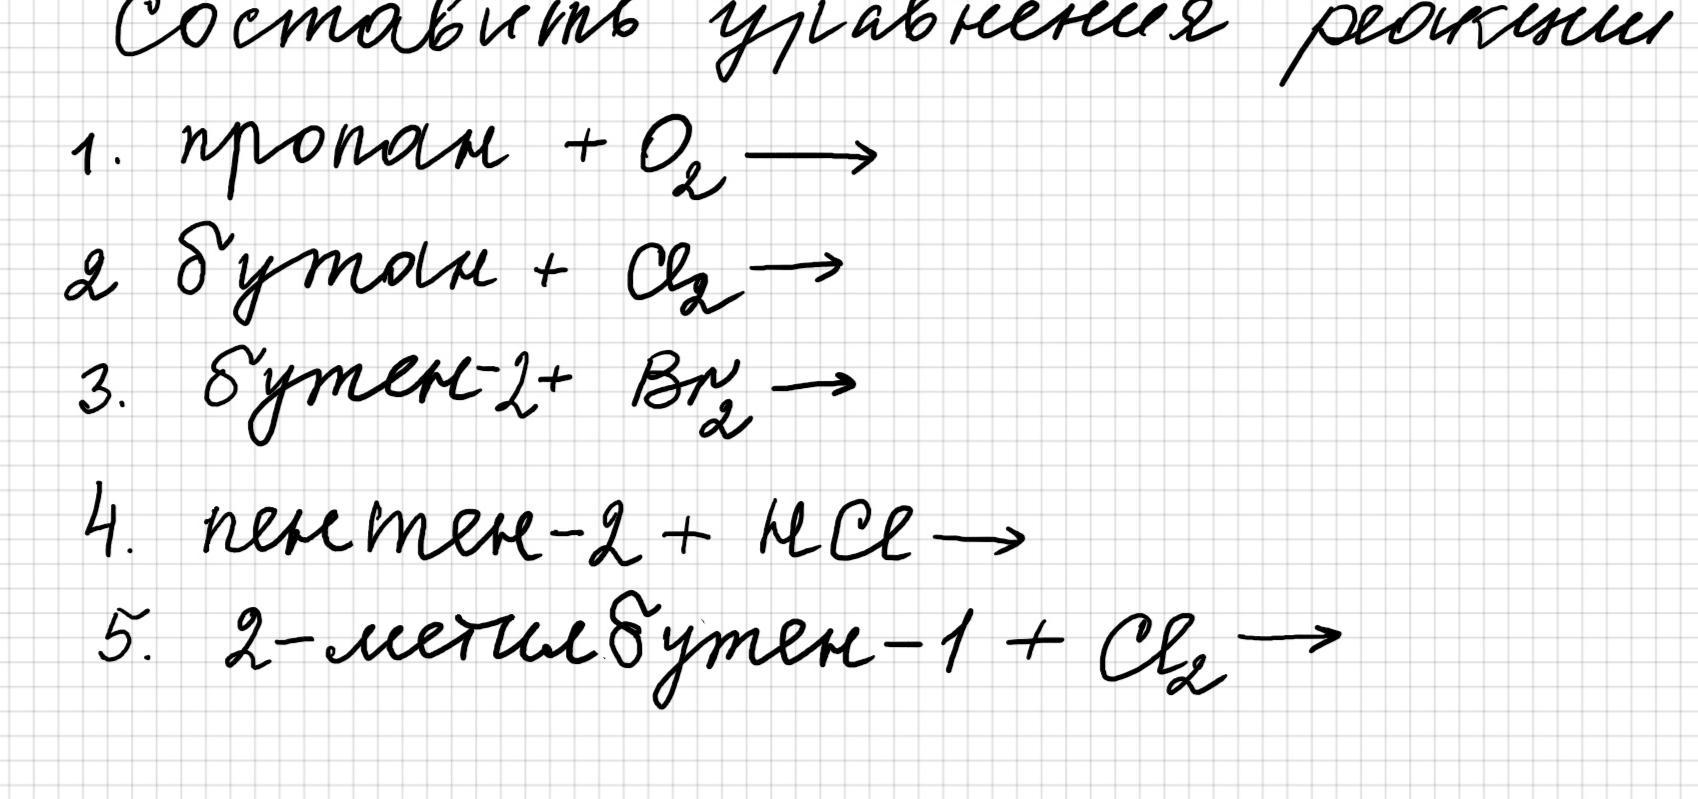 Составить уравнения реакции
1. пропан + O₂ →
2 бутан + Cl₂ →
3. бутен-2 + Br₂ →
4. пентен-2 + HCl →
5. 2-метилбутен-1 + Cl₂ →